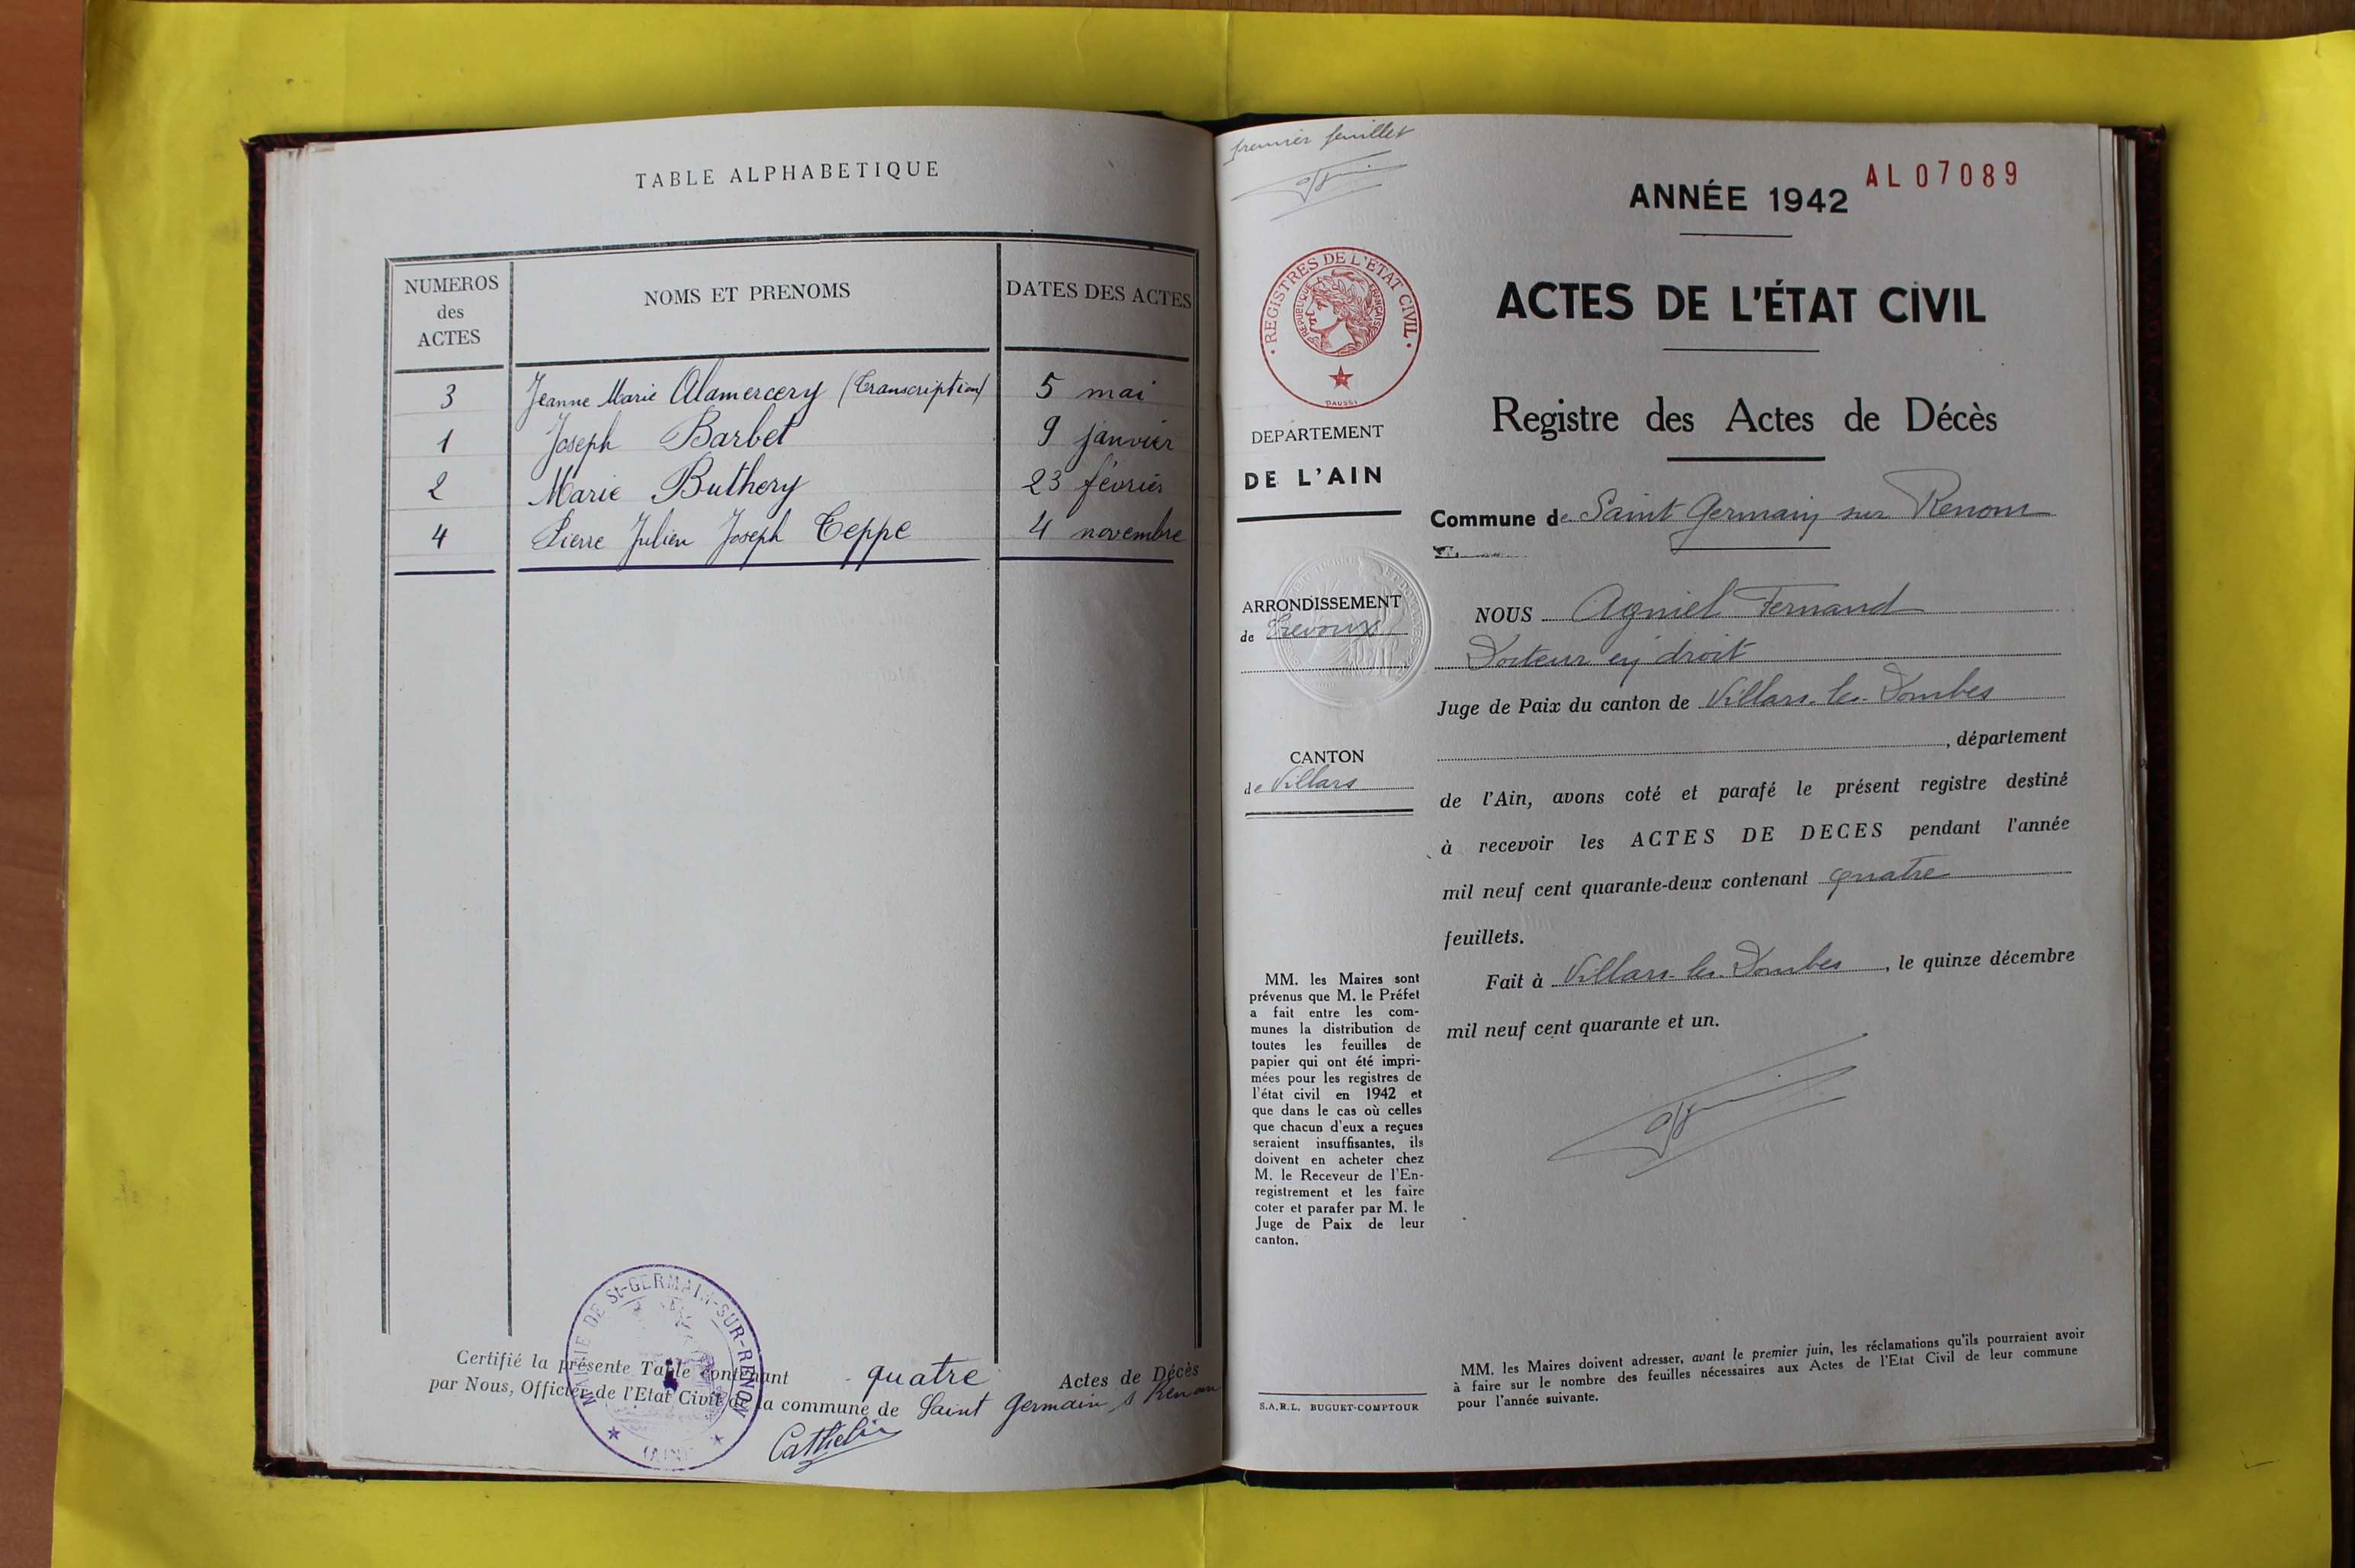 TABLE ALPHABETIQUE
NUMEROS des ACTES NOMS ET PRENOMS DATES DES ACTES
3 Jeanne Marie Alamercery (transcription) 5 mai
1 Joseph Barbet 9 janvier
2 Marie Buthery 23 février
4 Pierre Julien Joseph Teppe 4 novembre
Certifié la présente Table contenant quatre Actes de Décès
par Nous, Officier de l'Etat Civil de la commune de Saint Germain s Renon
MAIRIE DE St-GERMAIN-SUR-RENON
(AIN)
Cathelin
premier feuillet
ANNÉE 1942
AL 07089
REGISTRES DE L'ÉTAT CIVIL
RÉPUBLIQUE FRANÇAISE
DAUSSI
ACTES DE L'ÉTAT CIVIL
Registre des Actes de Décès
DEPARTEMENT
DE L'AIN
Commune de Saint Germain sur Renom
ARRONDISSEMENT
de Trevoux
NOUS Agniel Fernand
Docteur en droit
Juge de Paix du canton de Villars-les-Dombes
, département
CANTON
de Villars
de l'Ain, avons coté et parafé le présent registre destiné
à recevoir les ACTES DE DECES pendant l'année
mil neuf cent quarante-deux contenant quatre
feuillets.
Fait à Villars-les-Dombes, le quinze décembre
mil neuf cent quarante et un.
MM. les Maires sont
prévenus que M. le Préfet
a fait entre les com-
munes la distribution de
toutes les feuilles de
papier qui ont été impri-
mées pour les registres de
l'état civil en 1942 et
que dans le cas où celles
que chacun d'eux a reçues
seraient insuffisantes, ils
doivent en acheter chez
M. le Receveur de l'En-
registrement et les faire
coter et parafer par M. le
Juge de Paix de leur
canton.
S.A.R.L. BUGUET-COMPTOUR
MM. les Maires doivent adresser, avant le premier juin, les réclamations qu'ils pourraient avoir
à faire sur le nombre des feuilles nécessaires aux Actes de l'Etat Civil de leur commune
pour l'année suivante.